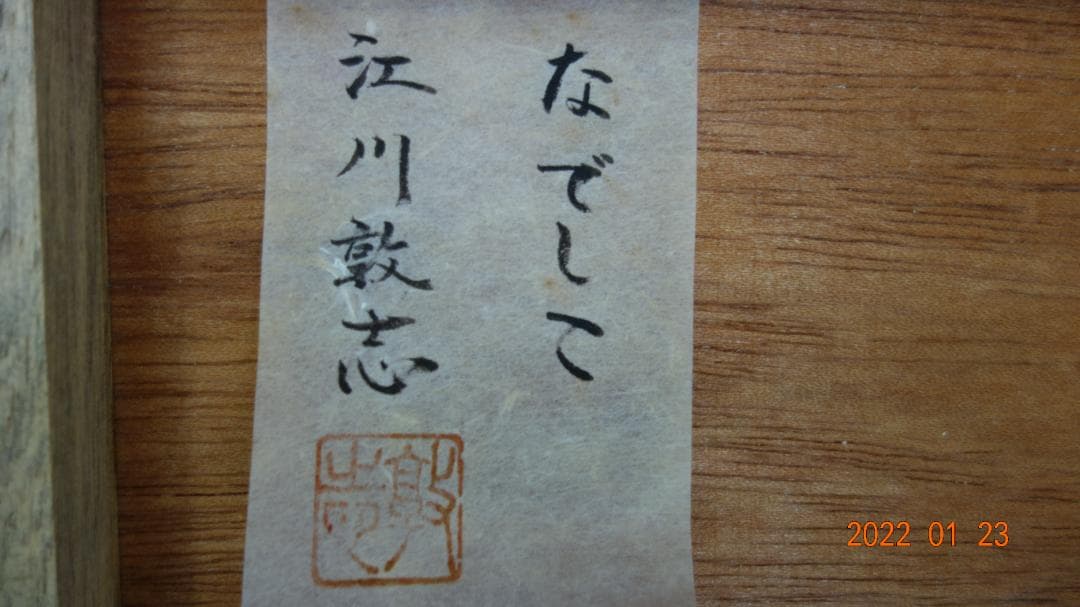 なでしこ
江川敦志
敦志
2022 01 23